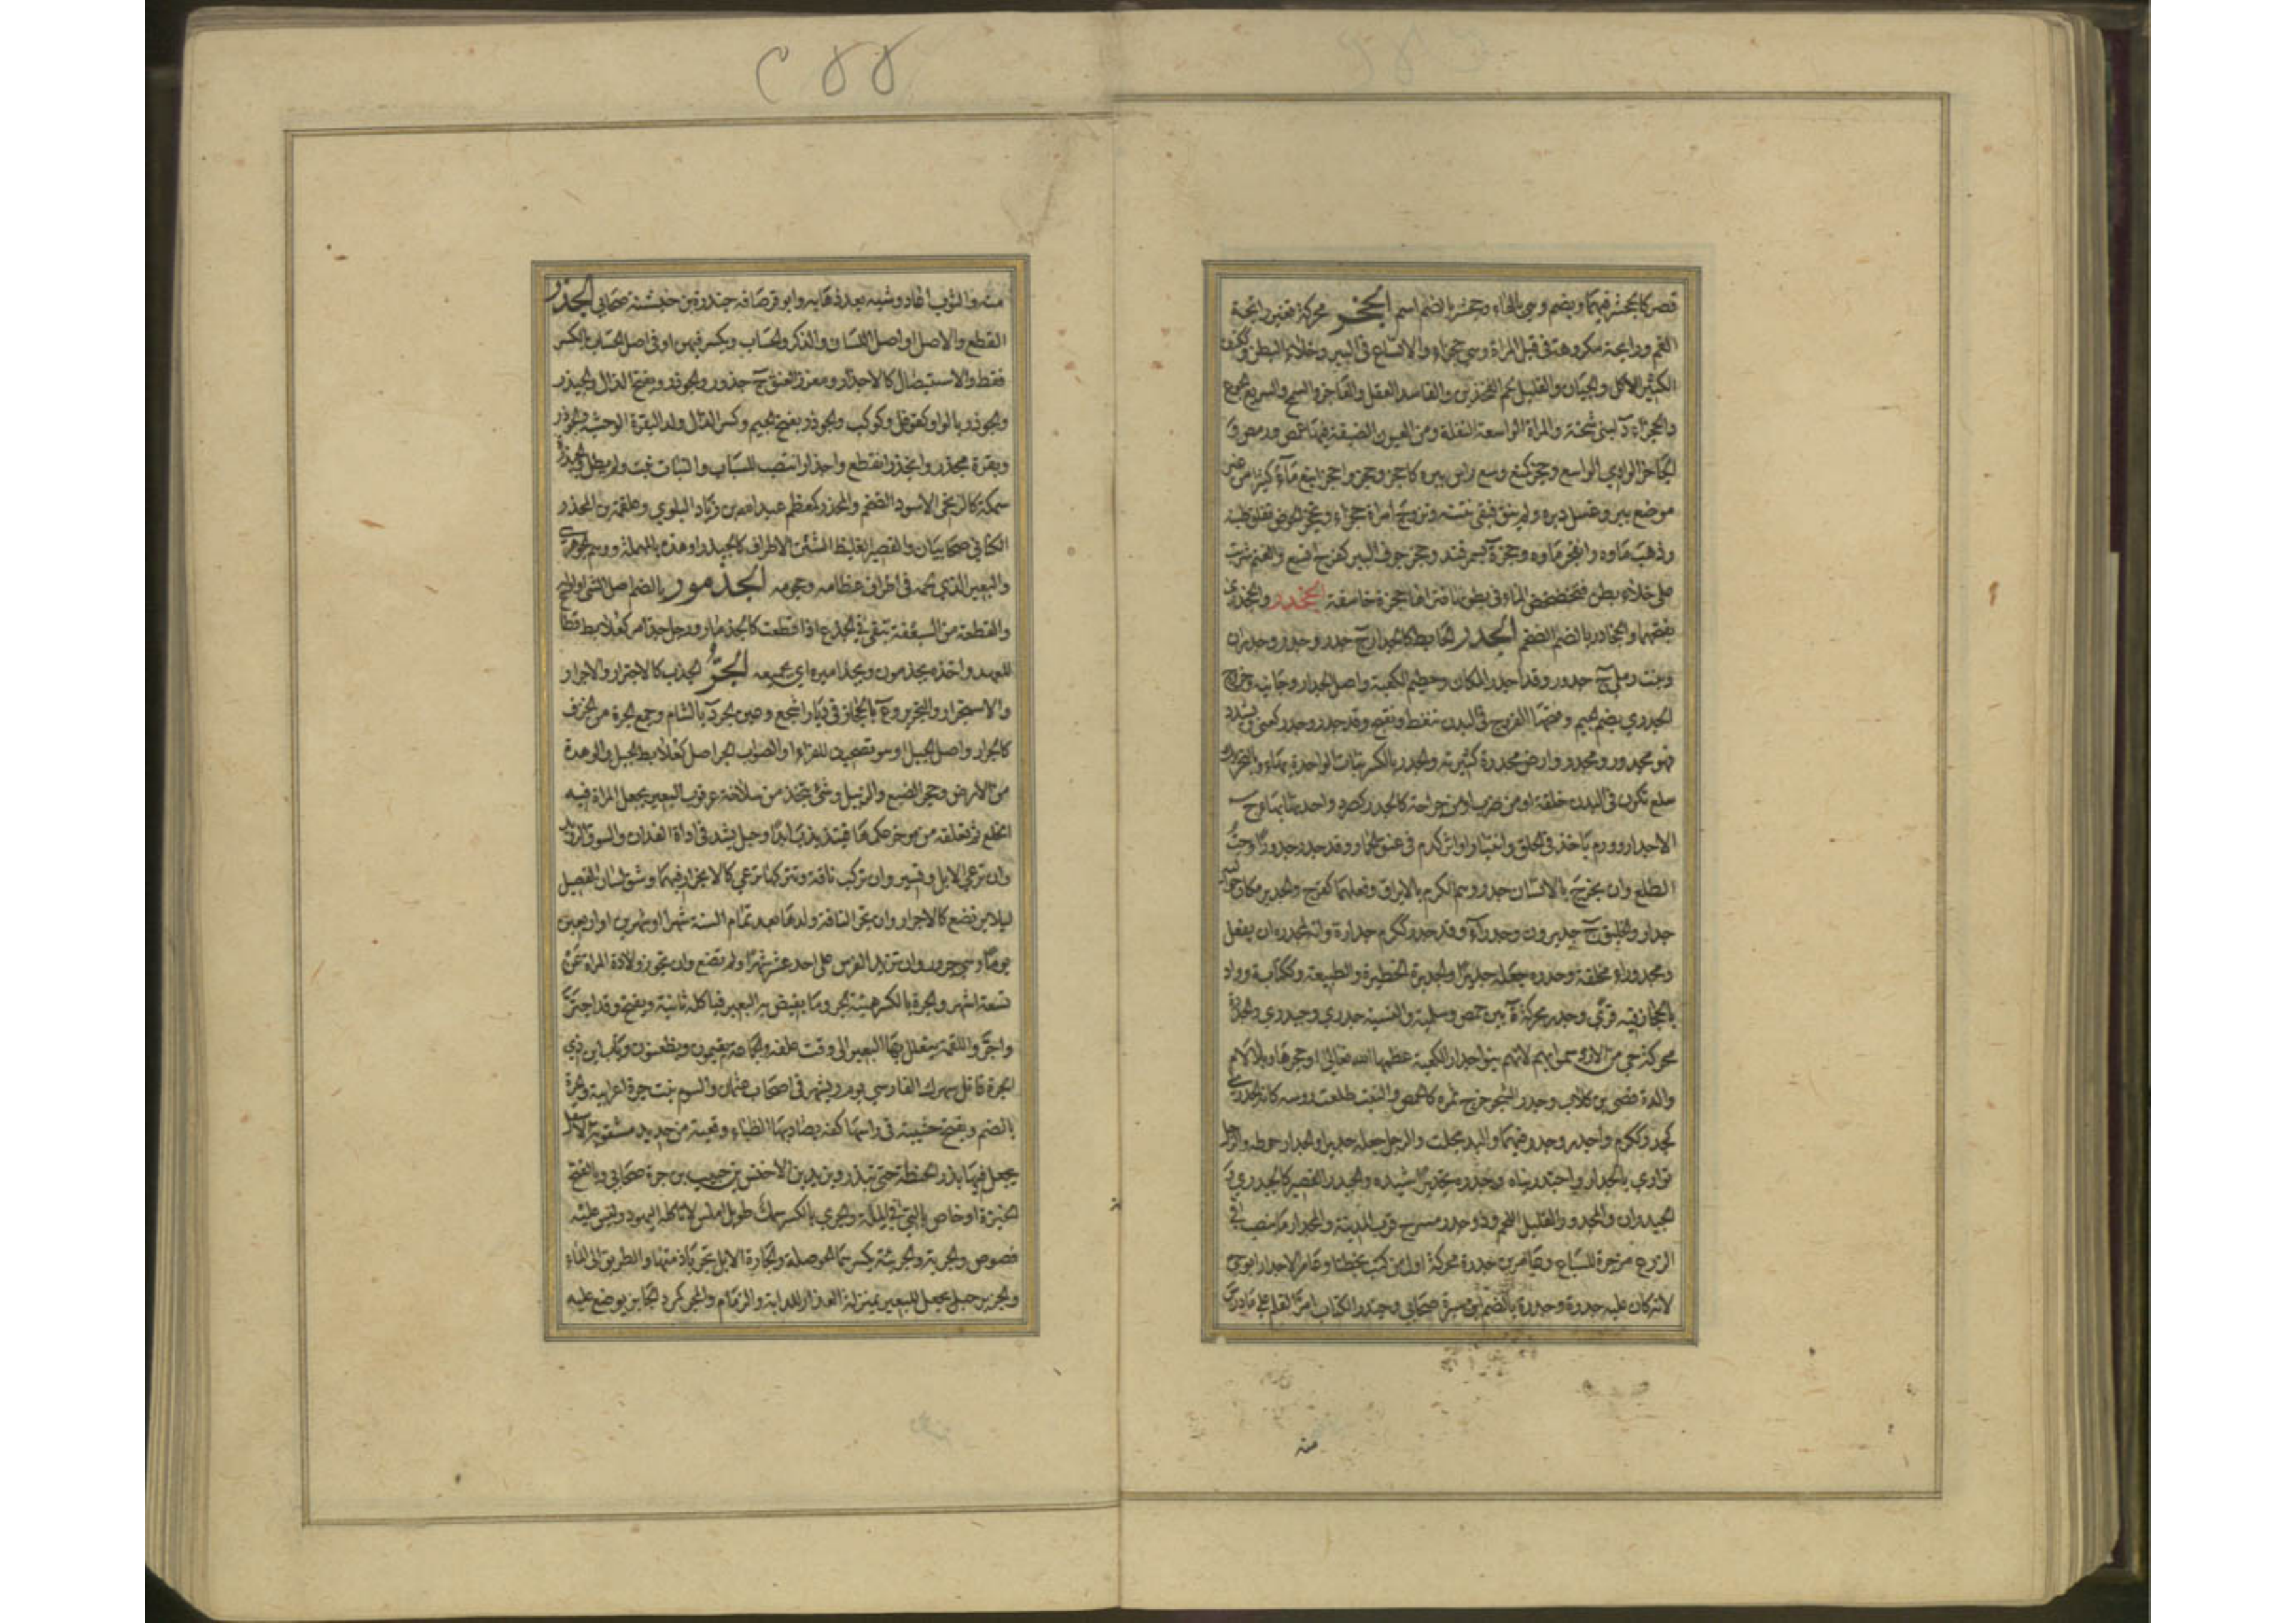 ٢٥٥
قصر كالجحشر فيهما ويضم وهي بالهاء وجحشر بالضم اسم الجخر محركة تغير رائحة
الفم ورائحة مكروهة في قبل المراة وهي جخراء والاتساع في البير وخلاء البطن وككتف
الكثير الاكل والجبان والقليل لحم الفخذين والفاسد العقل والفاجر والسمج والسريع الجوع
والجخراء د لبني شجنة والمراة الواسعة التفلة ومن العيون الضيقة فيها غمص ورمص و
الجاخر الوادي الواسع وجخر كمنع وسع راس بيره كاجخر وجخر واجخر انبع ماء كثيرا من غير
موضع بير وغسل دبره ولم ينق فبقي نتنه وتزوج امراة جخراء وتجخر الحوض تفلق طينه
وذهب ماوه وانفجر ماوه وجخرة بسمرقند وجخر جوف البير كفرح اتسع والغنم شربت
على خلاء بطن فتخضخض الماء في بطونها فتراها جخرة خاسفة الجخدر والجخدري
بفتحهما والجخادر بالضم الضخم الجدر الحايط كالجدار ج جدر وجدور وجدران
ونبت رملي ج جدور وقد اجدر المكان وحطيم الكعبة واصل الجدار وجانبه وخروج
الجدري بضم الجيم وفتحها القروح في البدن تنفط وتقيح وقد جدر وجدر كعني ويشدد
فهو مجدور ومجدر وارض مجدرة كثيرته والجدر بالكسر نبات الواحدة بهاء وبالتحريك
سلع تكون في البدن خلقة او من ضرب او من جراحة كالجدر كصرد واحدتها بهاء ج
الاجدار وورم ياخذ في الحلق وانتبار او اثر كدم في عنق الحمار وقد جدر جدورا وحب
الطلع وان يخرج بالانسان جدر وهم الكرم بالايراق وفعلهما كفرح والجدير مكان حواليه
جدار والخليق ج جديرون وجدراء وقد جدر ككرم جدارة وانه لمجدرة ان يفعل
ومجدور اي مخلقة وجدره جعله جديرا والجديرة الحظيرة والطبيعة وككتابة وواد
بالحجاز فيه قرى وجدر محركة ة بين حمص وسلمية والنسبة جدري وجيدري والجدرة
محركة حي من الازد سموا به لانهم بنوا جدار الكعبة عظمها الله تعالى او حجرها وبلا لام
والدة قصي بن كلاب وجدر الشجر خرج ثمره كالحمص والنبت طلعت روسه كانه الجدري
كجدر وككرم واجدر وجدر فيهما واليد مجلت والرجل جعله جديرا والجدار حوطه والرجل
توارى بالجدار واجتدر بناه وجدره تجديرا شيده والجيدر القصير كالجيدري و
الجيدران والمجدر والقليل اللحم وذو جدر مسرح قرب المدينة والمجدار ما ينصب في
الزرع مزجرة للسباع وعامر بن جدرة محركة اول من كتب بخطنا وعامر الاجدار ابو حي
لانه كان عليه جدرة وجدرة بالضم ابن سبرة صحابي وجندر الكتاب امر القلم على ما درس
منه
منه والثوب اعاد وشيه بعد ذهابه وابو قرصافة جندرة بن خيشنة صحابي الجذر
القطع والاصل او اصل اللسان والذكر والحساب ويكسر فيهن او في اصل الحساب بالكسر
فقط والاستيصال كالاجذار ومغرز العنق ج جذور والجوذر ويفتح الذال والجيذر
والجوذر بالواو كفوفل وكوكب والجوذر بفتح الجيم وكسر الذال ولد البقرة الوحشية ج جواذر
وبقرة مجذر وانجذر انقطع واجذار انتصب للسباب والنبات نبت ولم يطل والجيذرة
سمكة كالزنجي الاسود الضخم والمجذر كمعظم عبد الله بن زياد البلوي وعلقمة بن المجذر
الكناني صحابيان والقصير الغليظ الشثن الاطراف كالجيذر او هذه بالمهملة ووهم الجوهري
والبعير الذي لحمه في اطراف عظامه وحجومه الجذمور بالضم اصل الشي او اوله
والقطعة من السعفة تبقى في الجذع اذا قطعت كالجذمار ورجل جذامر كعلابط قطاع
للعهد واخذه بجذموره وبجذاميره اي بجميعه الجر الجذب كالاجترار والاجدرار
والاستجرار والتجرير وع بالحجاز في ديار اشجع وعين الجر د بالشام وجمع الجرة من الخزف
كالجرار واصل الجبل او هو تصحيف للفراء والصواب الجراصل كعلابط الجبل والوهدة
من الارض وجحر الضبع والزبيل وشئ يتخذ من سلاخة عرقوب البعير تجعل المراة فيه
الخلع ثم تعلقه من موخر عكمها فيتذبذب ابدا وحبل يشد في اداة الفدان والسوق الرويد
وان ترعى الابل وتسير وان تركب ناقة وتتركها ترعى كالانجرار فيهما وشق لسان الفصيل
ليلا يرتضع كالاجرار وان تجر الناقة ولدها بعد تمام السنة شهرا او شهرين او اربعين
يوما وهي جرور وان تزيد الفرس على احد عشر شهرا ولم تضع وان تجوز ولادة المراة عن
تسعة اشهر والجرة بالكسر هيئة الجر وما يفيض به البعير فياكله ثانية ويفتح وقد اجتر
واجر واللقمة يتعلل بها البعير الى وقت علفه والجماعة يقيمون ويظعنون وباب ابن ذي
الجرة قاتل سهرك الفارسي يوم ريشهر في اصحاب عثمان والسوم بنت جرة اعرابية والجرة
بالضم ويفتح خشيبة في راسها كفة يصاد بها الظباء وقعبة من حديد مثقوبة الاسفل
يجعل فيها بذر الحنطة حتى تبذر ويزيد بن الاخنس بن حبيب بن جرة صحابي وبالفتح
الخبزة او خاص بالتي في الملة والجري بالكسر سمك طويل املس لا تاكله اليهود وليس عليه
فصوص والجرية والجريئة بكسرهما الحوصلة والجارة الابل تجر بازمتها والطريق الى الماء
والجرير حبل يجعل للبعير بمنزلة العذار للدابة والزمام والمجر كمرد الجايز يوضع عليه